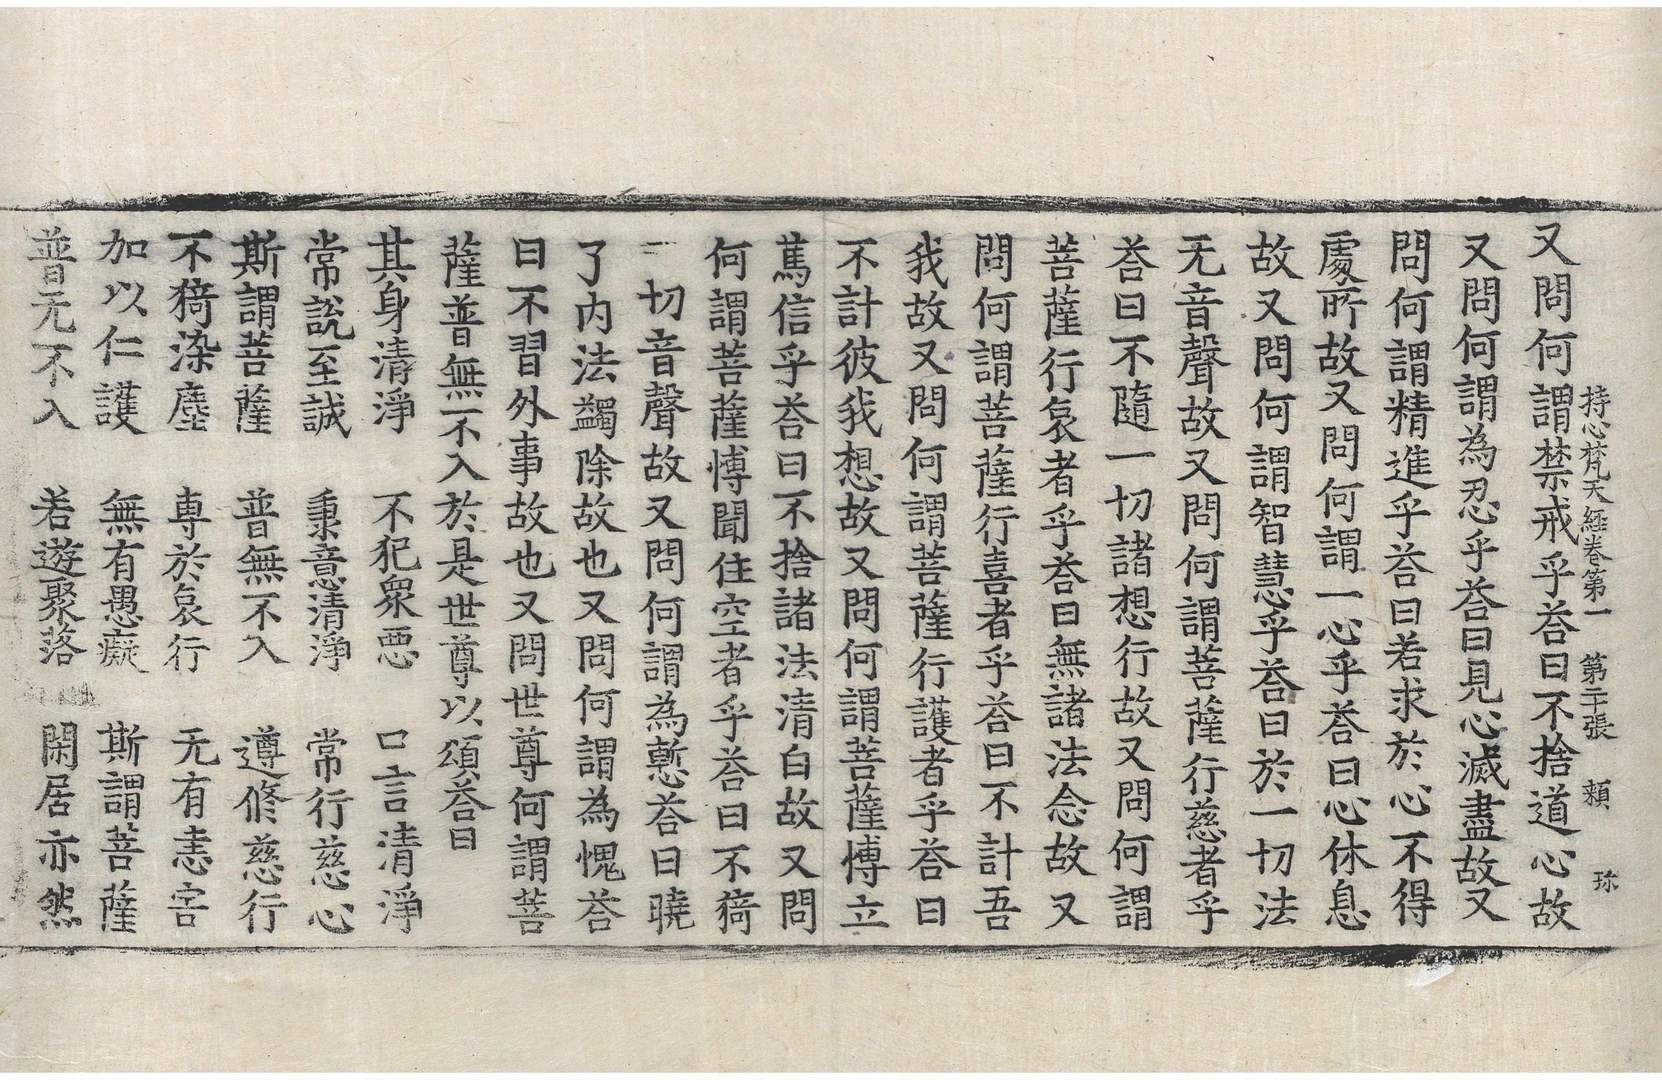 持心梵天経卷第一 第二十張 頼 珎
又問何謂禁戒乎荅曰不捨道心故
又問何謂為忍乎荅曰見心滅盡故又
問何謂精進乎荅曰若求於心不得
處所故又問何謂一心乎荅曰心休息
故又問何謂智慧乎荅曰於一切法
无音聲故又問何謂菩薩行慈者乎
荅曰不隨一切諸想行故又問何謂
菩薩行哀者乎荅曰無諸法念故又
問何謂菩薩行喜者乎荅曰不計吾
我故又問何謂菩薩行護者乎荅曰
不計彼我想故又問何謂菩薩博立
篤信乎荅曰不捨諸法清白故又問
何謂菩薩博聞住空者乎荅曰不猗
一切音聲故又問何謂為慙荅曰曉
了内法蠲除故也又問何謂為愧荅
曰不習外事故也又問世尊何謂菩
薩普無不入於是世尊以頌荅曰
其身清淨 不犯衆悪 口言清淨
常說至誠 秉意清淨 常行慈心
斯謂菩薩 普無不入 遵修慈行
不猗染塵 專於哀行 无有恚害
加以仁護 無有愚癡 斯謂菩薩
普无不入 若遊聚落 閑居亦然